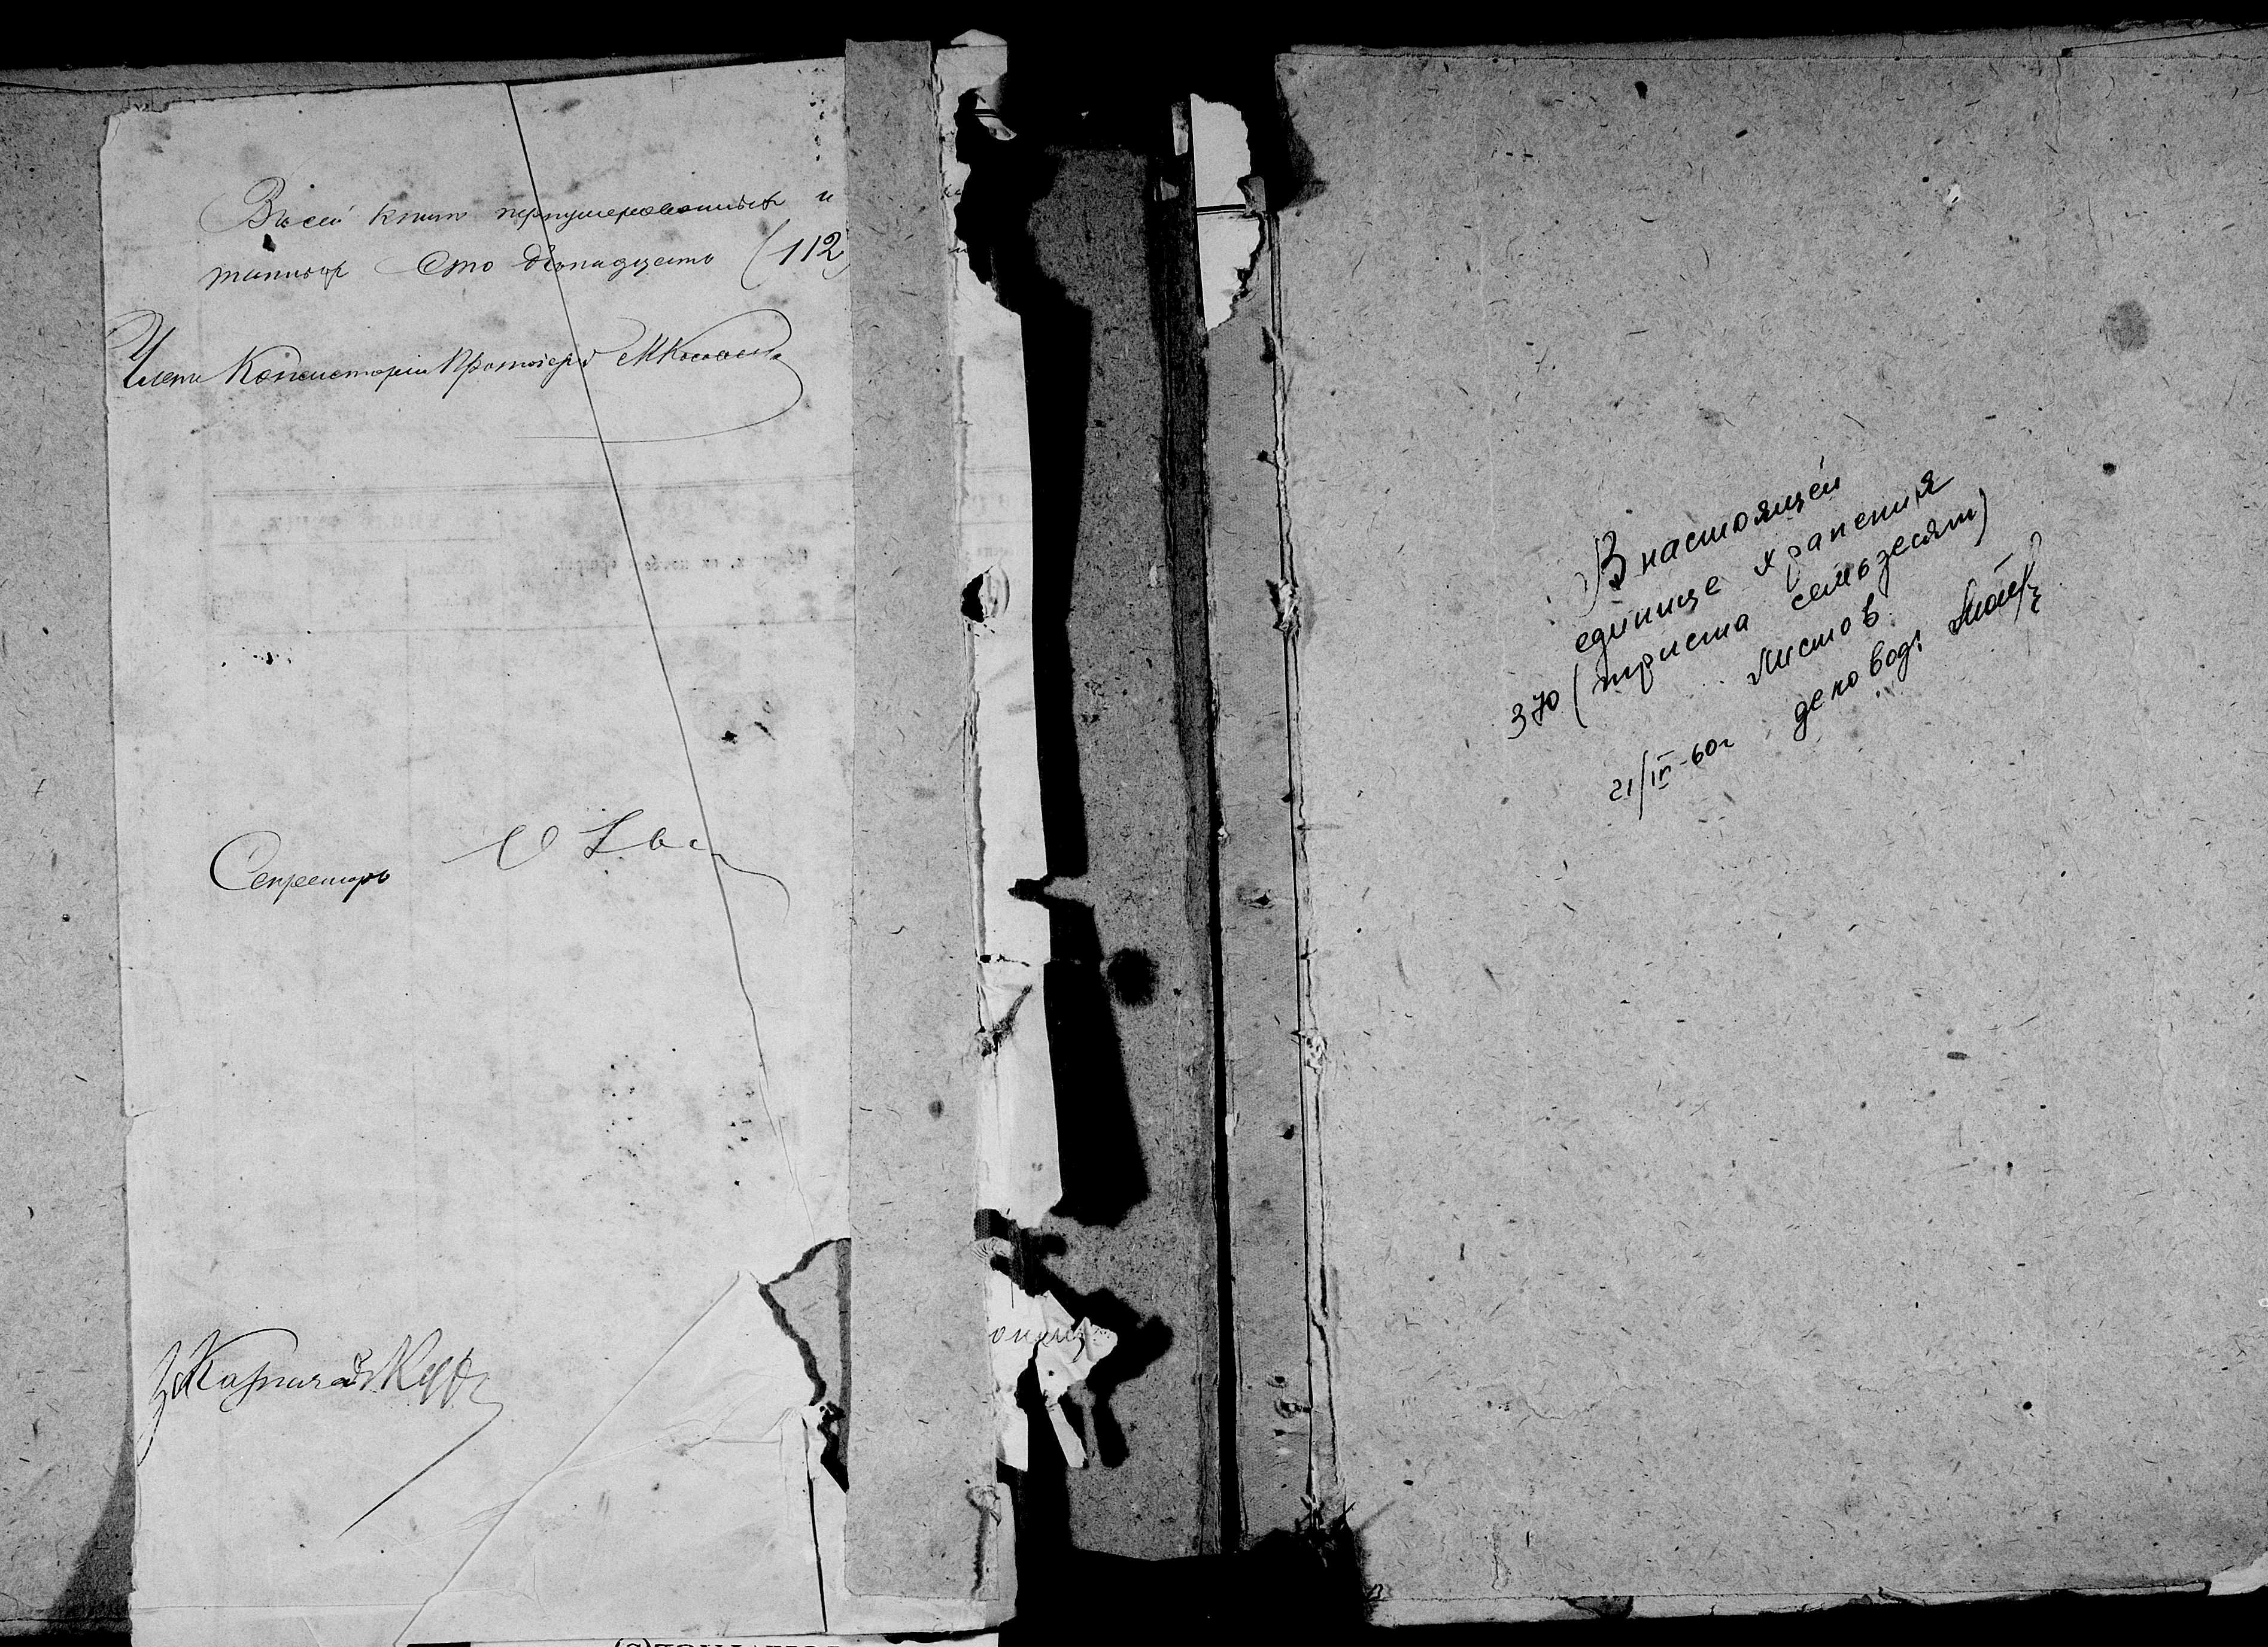 Въ сей книгѣ перенумерованныхъ и
Сто двѣнадцать (112)
Членъ Консисторіи Протоіерей
Секретарь
В настоящей
единице хранения
370 (триста семьдесят)
листов
21/IV-60г деловод: